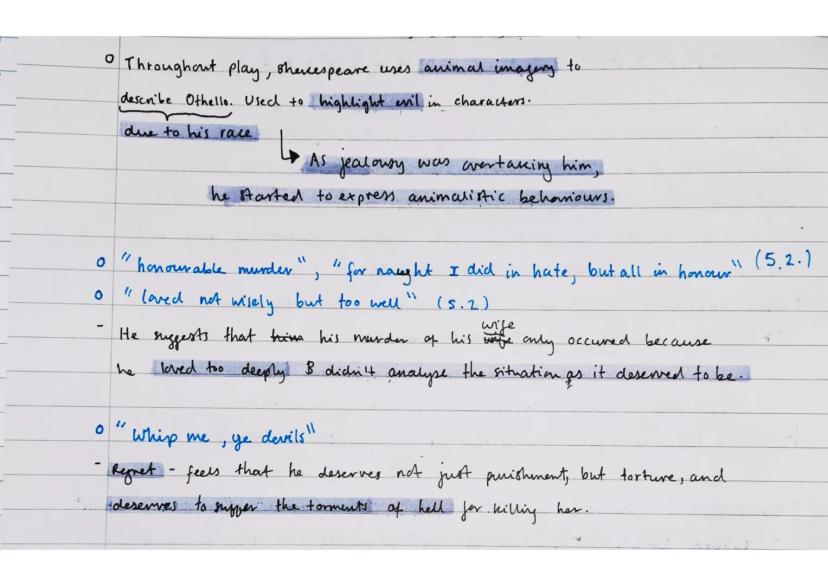 Throughout play, Shakespeare uses animal imagery to
describe Othello. Used to highlight evil in characters.
due to his race
As jealousy was overtaking him,
he started to express animalistic behaviours.
"honourable murder", "for naught I did in hate, but all in honour" (5.2.)
"loved not wisely but too well" (5.2)
- He suggests that his murder of his wife only occured because
he loved too deeply & didn't analyse the situation as it deserved to be.
"Whip me, ye devils"
- Regret - feels that he deserves not just punishment, but torture, and
deserves to suffer the torments of hell for killing her.